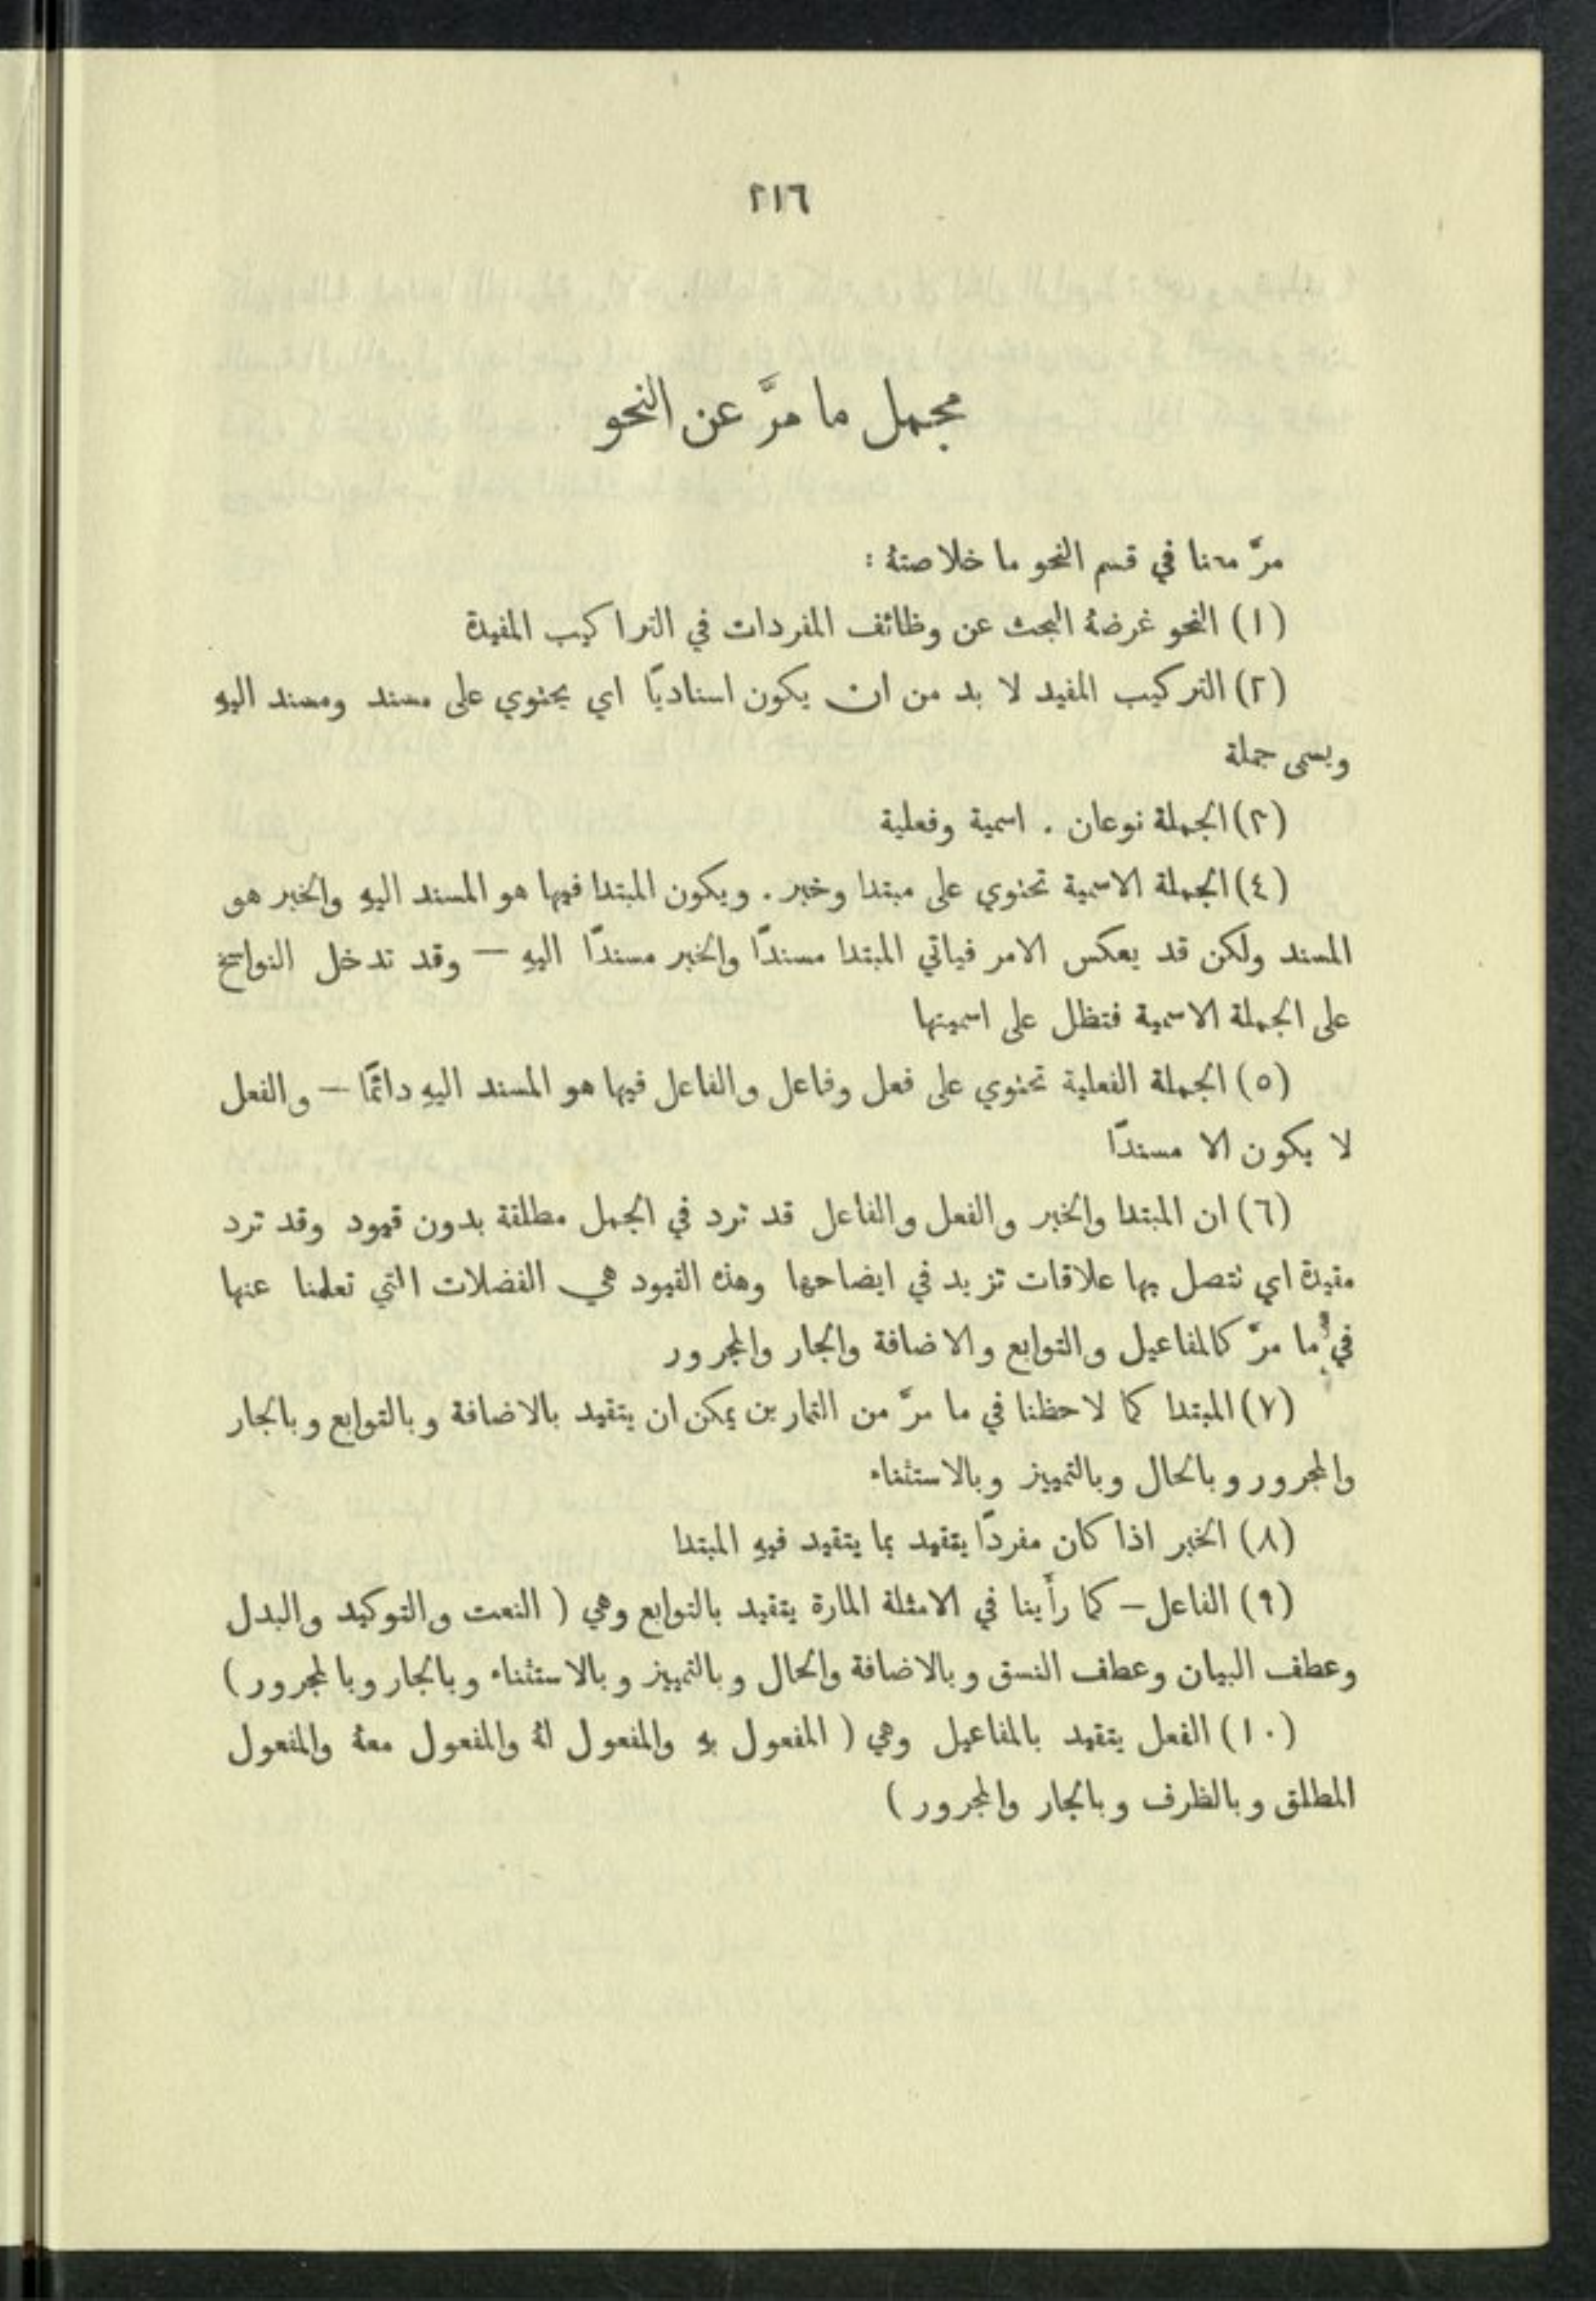 ٢١٦
مجمل ما مرَّ عن النحو
مرَّ معنا في قسم النحو ما خلاصتهُ :
(١) النحو غرضهُ البحث عن وظائف المفردات في التراكيب المفيدة
(٢) التركيب المفيد لا بد من ان يكون اسناديًا اي يحتوي على مسند ومسند اليهِ
ويسمى جملة
(٣) الجملة نوعان . اسمية وفعلية
(٤) الجملة الاسمية تحتوي على مبتدا وخبر . ويكون المبتدا فيها هو المسند اليهِ والخبر هو
المسند ولكن قد يعكس الامر فياتي المبتدا مسندًا والخبر مسندًا اليهِ — وقد تدخل النواسخ
على الجملة الاسمية فتظل على اسميتها
(٥) الجملة الفعلية تحتوي على فعل وفاعل والفاعل فيها هو المسند اليهِ دائمًا — والفعل
لا يكون الا مسندًا
(٦) ان المبتدا والخبر والفعل والفاعل قد ترد في الجمل مطلقة بدون قيود وقد ترد
مقيدة اي تتصل بها علاقات تزيد في ايضاحها وهذه القيود هي الفضلات التي تعلمنا عنها
في ما مرَّ كالمفاعيل والتوابع والاضافة والجار والمجرور
(٧) المبتدا كما لاحظنا في ما مرَّ من التمارين يمكن ان يتقيد بالاضافة وبالتوابع وبالجار
والمجرور وبالحال وبالتمييز وبالاستثناء
(٨) الخبر اذا كان مفردًا يتقيد بما يتقيد فيهِ المبتدا
(٩) الفاعل — كما رأينا في الامثلة المارة يتقيد بالتوابع وهي ( النعت والتوكيد والبدل
وعطف البيان وعطف النسق وبالاضافة والحال وبالتمييز وبالاستثناء وبالجار وبالمجرور )
(١٠) الفعل يتقيد بالمفاعيل وهي ( المفعول بهِ والمفعول لهُ والمفعول معهُ والمفعول
المطلق وبالظرف وبالجار والمجرور )